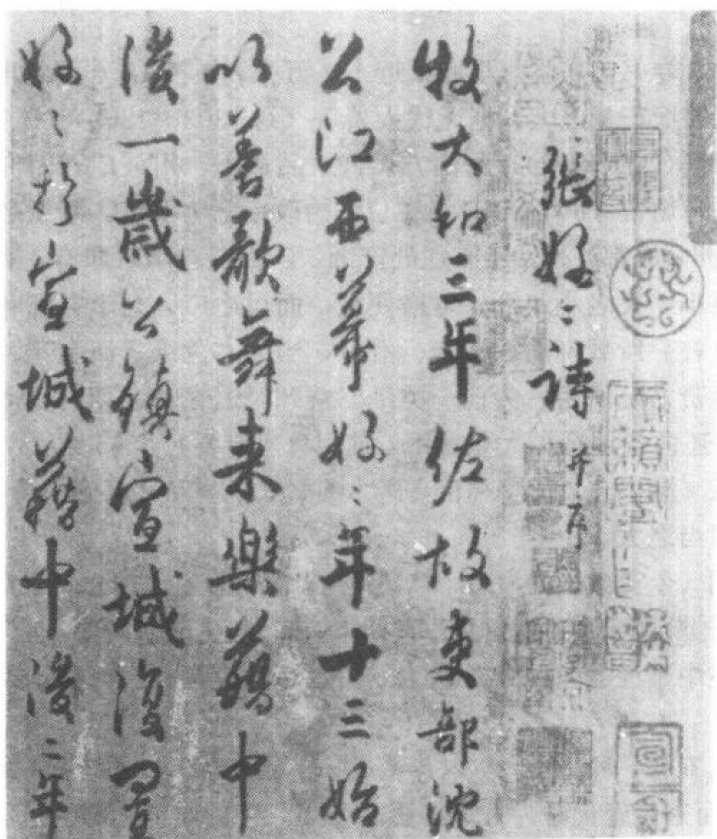 張好﹦詩 并序
牧大和三年佐故吏部沈
公江西幕好﹦年十三始
以善歌舞來樂籍中
後一歲公鎮宣城復置
好﹦於宣城籍中後二年